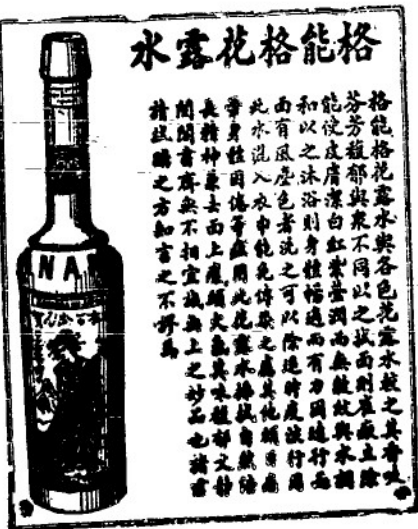 格能格花露水
格能格花露水與各色花露水較之其香味
芬芳馥郁與衆不同以之拭面則雀瘢立除
能使皮膚潔白紅紫瑩潤而無皺紋與水調
和以之沐浴則身體暢適而有力因遠行而
面有風塵色者洗之可以除遇時疫流行用
此水洗入衣巾能免傳染之虞其他頭目痛
暈身體困倦等症用此花露水搽拭自然
長精神兼去面上瘢其味馥郁文靜
閨閣書齋無不相宜誠無上之妙品也諸君
請試購之方知言之不謬焉
NA